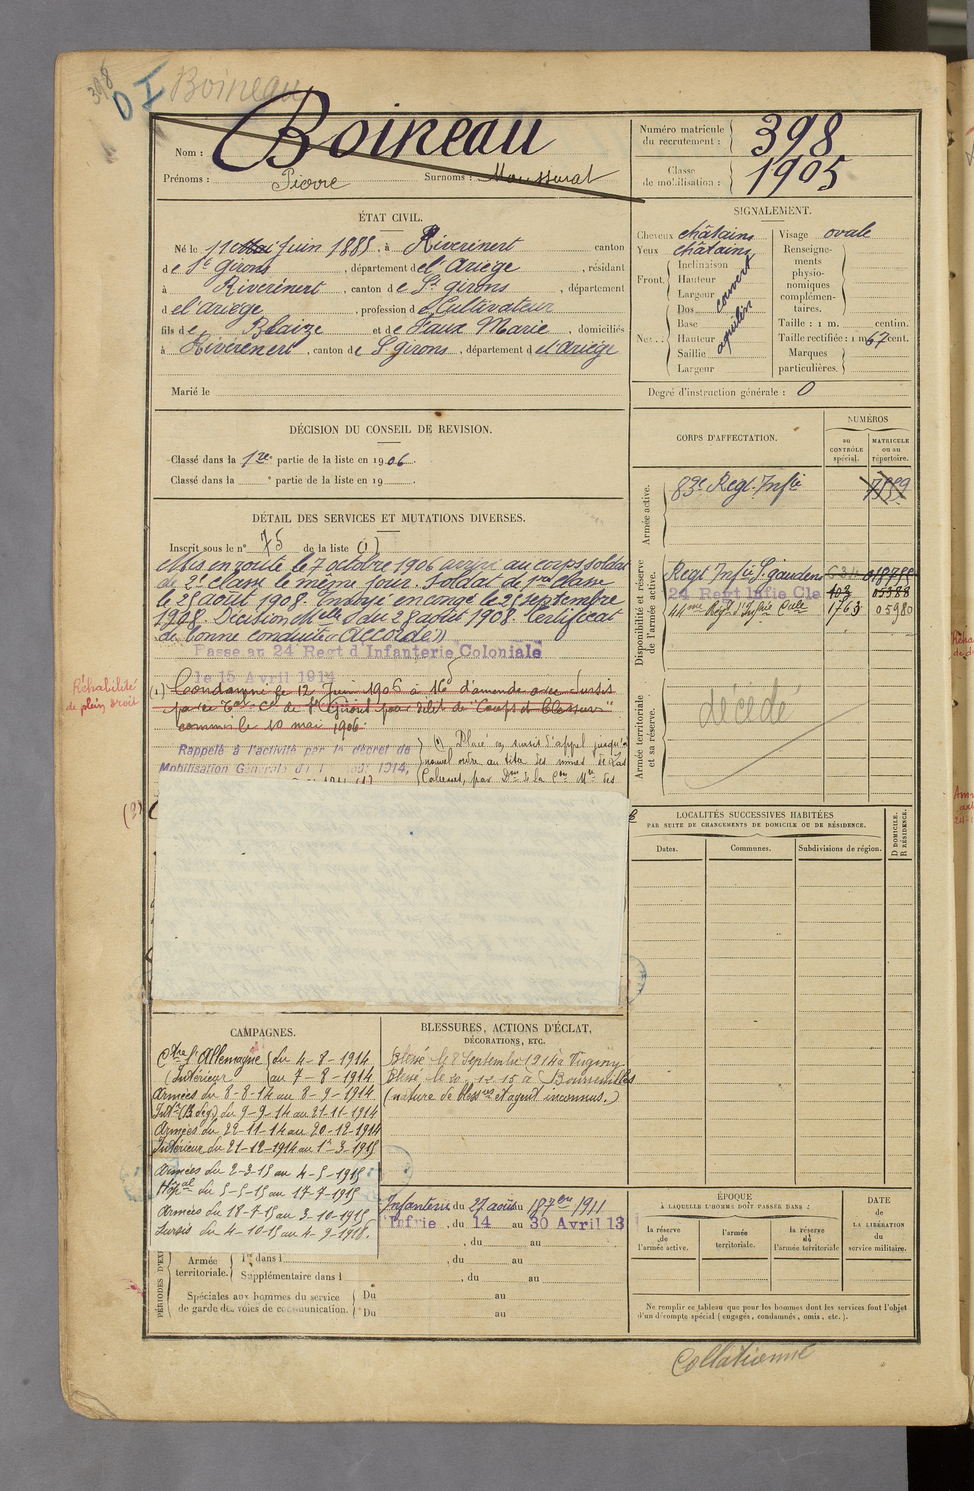 398
DI Boineau
Nom : Boineau
Prénoms : Pierre Surnoms : Moussurat
Numéro matricule du recrutement : 398
Classe de mobilisation : 1905
ÉTAT CIVIL.
Né le 11 Mai Juin 1885, à Rivèrenert canton
de St Girons, département de l'Ariège, résidant
à Rivèrenert, canton de St girons, département
d el'ariège, profession de Cultivateur
fils de Blaize et de Faur Marie, domiciliés
à Rivèrenert, canton de St girons, département d el'Ariège
Marié le
SIGNALEMENT.
Cheveux châtains
Yeux châtains
Front. Inclinaison
Hauteur
Largeur
couvert
Nez. Dos
Base
Hauteur
Saillie
Largeur
aquilin
Visage ovale
Renseigne-
ments
physio-
nomiques
complémen-
taires.
Taille : 1 m. centim.
Taille rectifiée : 1 m 67 cent.
Marques
particulières.
Degré d'instruction générale : 0
DÉCISION DU CONSEIL DE REVISION.
Classé dans la 1re partie de la liste en 1906.
Classé dans la e partie de la liste en 19 .
DÉTAIL DES SERVICES ET MUTATIONS DIVERSES.
Inscrit sous le n° 75 de la liste (1)
Mis en route le 7 octobre 1906 arrivé au corps soldat
de 2e classe le même jour. Soldat de 1re classe
le 25 août 1908. Envoyé en congé le 25 septembre
1908. Décision Mlle du 28 août 1908. Certificat
de bonne conduite « Accordé »
Passé au 24 Regt d'Infanterie Coloniale
le 15 Avril 1914
Réhabilité
de plein droit
(1) Condamné le 12 Juin 1906 à 16f d'amende avec sursis
par le Tal Cel de St Girons pour délit de "Coups et blessures"
commis le 10 mai 1906.
Rappelé à l'activité par le décret de
Mobilisation Générale du 1 août 1914,
Placé en sursis d'appel jusqu'à
nouvel ordre au titre des mines de
(2)
CORPS D'AFFECTATION.
NUMÉROS
au
CONTRÔLE
spécial.
MATRICULE
ou au
répertoire.
Armée active.
83e Regt Infie 7559
Disponibilité et réserve
de l'armée active.
Regt Infie St gaudens
24 Regt Infie Cle 403 05388
44me Regt d'Infie Cale 1763 05980
Armée territoriale
et sa réserve.
décédé
LOCALITÉS SUCCESSIVES HABITÉES
PAR SUITE DE CHANGEMENTS DE DOMICILE OU DE RÉSIDENCE.
Dates.
Communes.
Subdivisions de région.
D DOMICILE.
R RÉSIDENCE.
CAMPAGNES.
Ctre l'Allemagne du 4-8-1914
(Intérieur au 7-8-1914
Armées du 8-8-14 au 8-9-1914
du 9-9-14 au 21-11-1914
Armées du 22-11-14 au 20-12-1914
Intérieur du 21-12-1914 au 1er-3-1915
Armées du 2-3-15 au 4-5-1915
Hôpal du 5-5-15 au 17-7-1915
Armées du 18-7-15 au 3-10-1915
Sursis du 4-10-15 au 4-9-1918.
BLESSURES, ACTIONS D'ÉCLAT,
DÉCORATIONS, ETC.
Blessé le 8 Septembre 1914 à
Blessé le
(nature de bless res et agent inconnus.)
Infanterie du 27 août au 1911
Infrie, du 14 au 30 Avril 13
, du au
Armée
territoriale.
1re dans l , du au
Supplémentaire dans l , du au
Spéciales aux hommes du service
de garde des voies de communication.
Du au
Du au
ÉPOQUE
À LAQUELLE L'HOMME DOIT PASSER DANS :
la réserve
de
l'armée active.
l'armée
territoriale.
la réserve
de
l'armée territoriale
DATE
de
LA LIBÉRATION
du
service militaire.
Ne remplir ce tableau que pour les hommes dont les services font l'objet
d'un décompte spécial (engagés, condamnés, omis, etc.).
Collationné